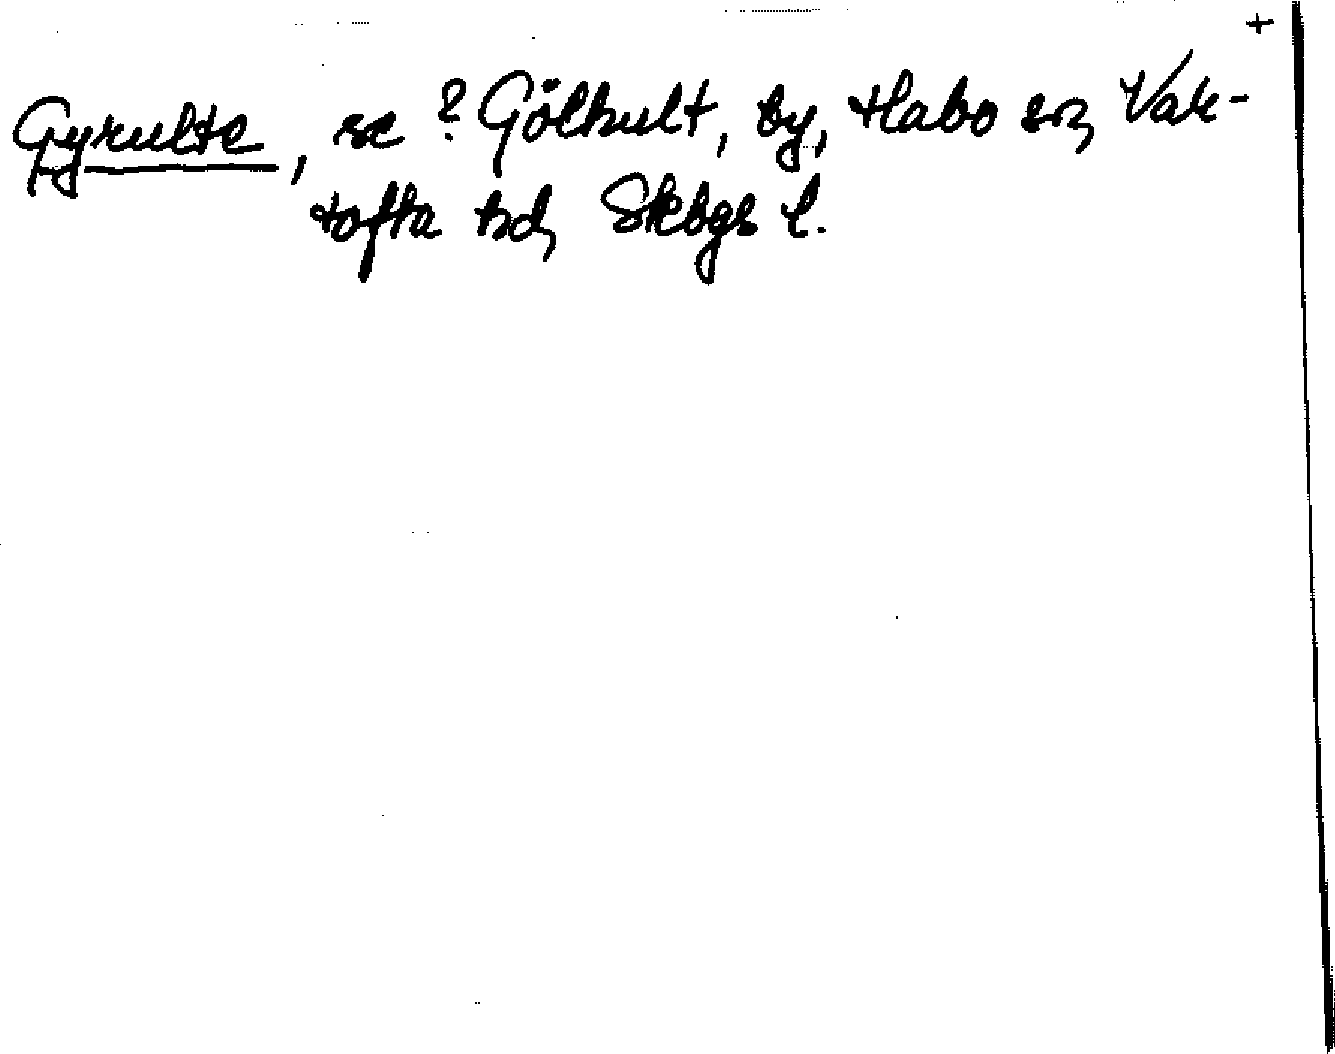 +
Gyrulte, se ? Gölhult, by, Habo sn, Var-
tofta hd, Skbgs l.